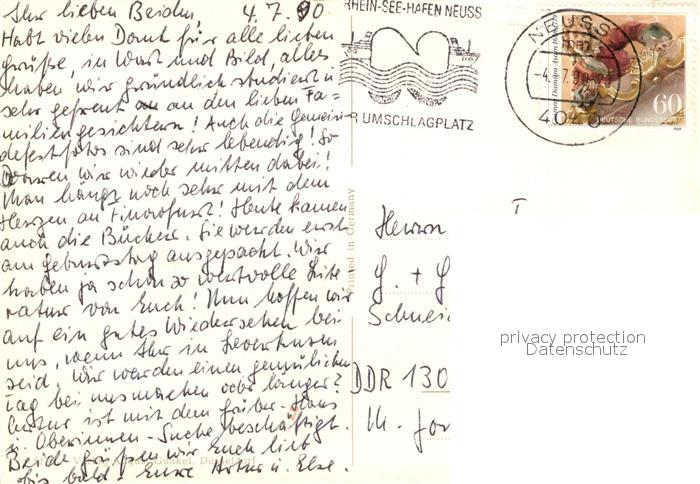 Ihr lieben Beiden, 4.7.90.
Habt vielen Dank für alle lieben
Grüße, in Wort und Bild, alles
haben wir gründlich studiert u.
sehr gefreut an den lieben Fa-
miliengesichtern! Auch die Gemein-
defestfotos sind sehr lebendig! So
waren wir wieder mitten dabei!
Man hängt noch sehr mit dem
Herzen an! Heute kamen
auch die Bücher. Sie werden erst
am Geburtstag ausgepackt. Wir
haben ja schon so wertvolle Lite
ratur von Euch! Nun hoffen wir
auf ein gutes Wiedersehen bei
uns, wenn Ihr in Leverkusen
seid, wir werden einen gemütlichen
Tag bei uns machen oder länger?
Artur ist mit dem
Oberinnen-Suche beschäftigt.
Beide grüßen wir Euch lieb
bis bald - Eure Artur u. Else.
RHEIN-SEE-HAFEN NEUSS
UMSCHLAGPLATZ
NEUSS 1
-4.7.90
4040
60
DEUTSCHE BUNDESPOST
Printed in Germany
Herrn
G. + G
Schnei
DDR 130
Düsseldorf
privacy protection
Datenschutz